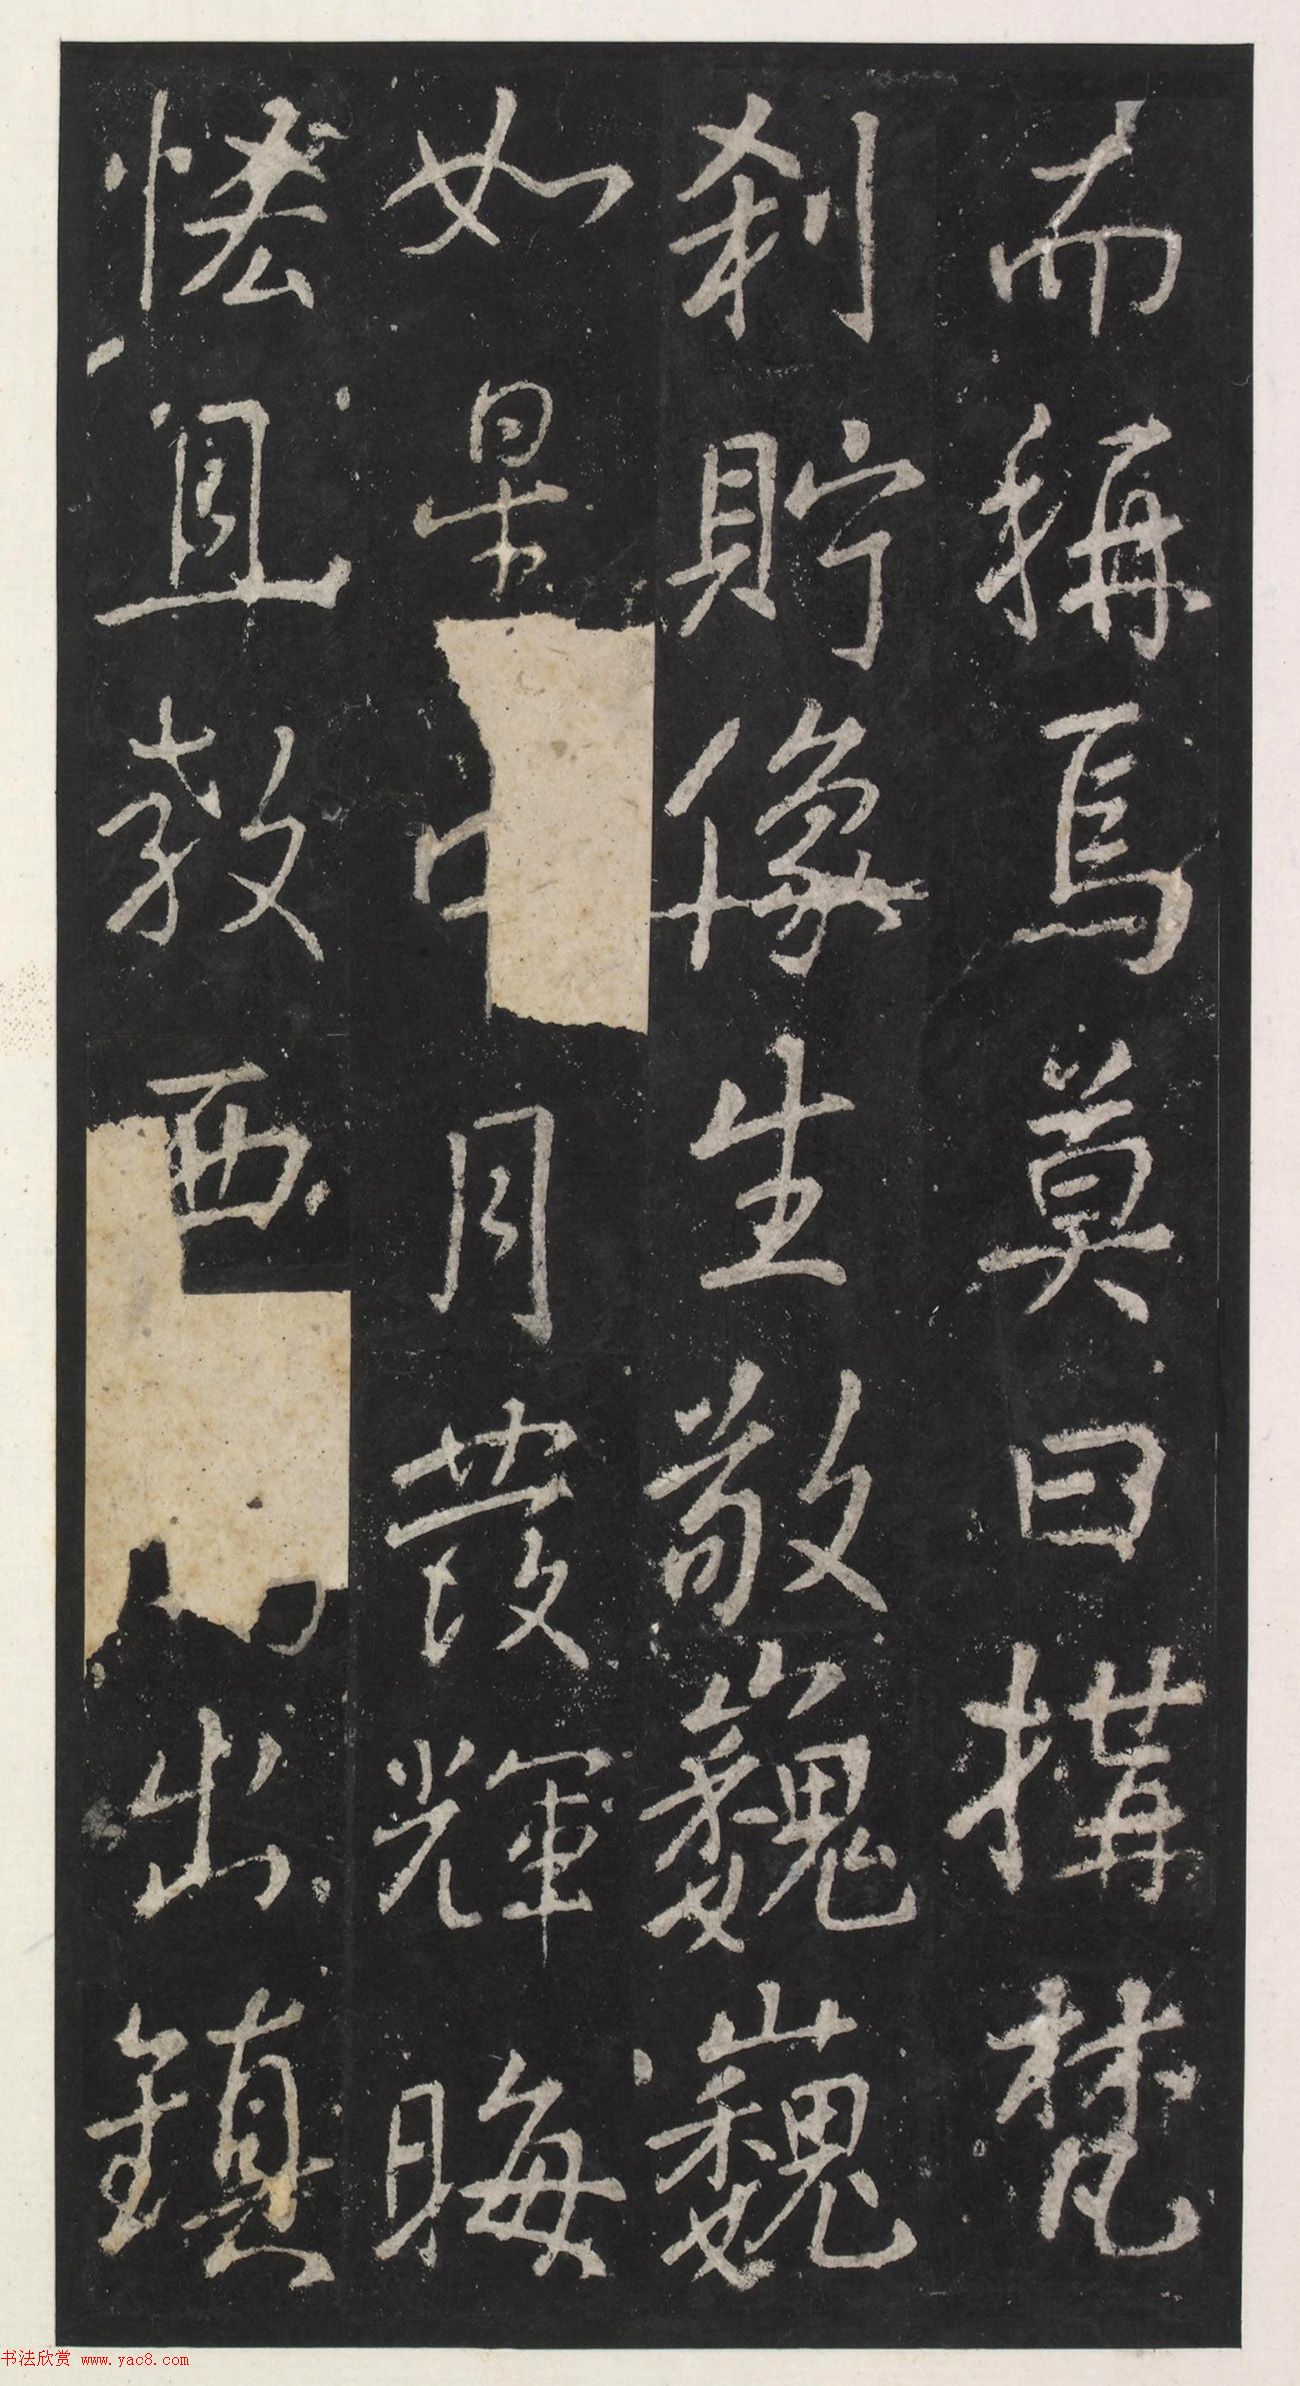 而稱焉莫曰搆梵
刹貯像生敬巍巍
如星中月發輝晦
宜教西出鎮
书法欣赏 www.yac8.com